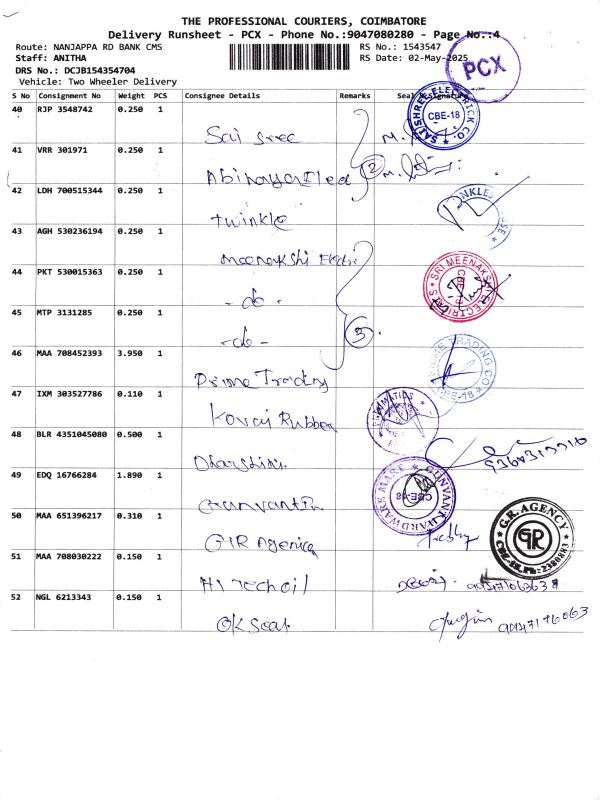 THE PROFESSIONAL COURIERS, COIMBATORE
Delivery Runsheet - PCX - Phone No.:9047080280 - Page No.:4
Route: NANJAPPA RD BANK CMS RS No.: 1543547
Staff: ANITHA RS Date: 02-May-2025
DRS No.: DCJB154354704
Vehicle: Two Wheeler Delivery
PCX
S No Consignment No Weight PCS Consignee Details Remarks Seal & Signature
40 RJP 3548742 0.250 1 Sai Sree
SAI SHREE ELECTRICK CO. CBE-18
41 VRR 301971 0.250 1 Abinaya Elect 2
42 LDH 700515344 0.250 1 twinkle
43 AGH 530236194 0.250 1 Meenakshi Electri
SRI MEENAKSHI ELECTRICALS
44 PKT 530015363 0.250 1 -do-
45 MTP 3131285 0.250 1 -do- 3
46 MAA 708452393 3.950 1 Prime Trading
PRIME TRADING CO CBE-18
47 IXM 303527786 0.110 1 Kovai Rubber
48 BLR 4351045080 0.500 1 Dharshini
49 EDQ 16766284 1.890 1 Gunvanth
GUNVANT HARDWARE MART CBE-18
50 MAA 651396217 0.310 1 GR Agencies
G.R. AGENCY GR
51 MAA 708030222 0.150 1 Hi Tech oil
52 NGL 6213343 0.150 1 OK Seal